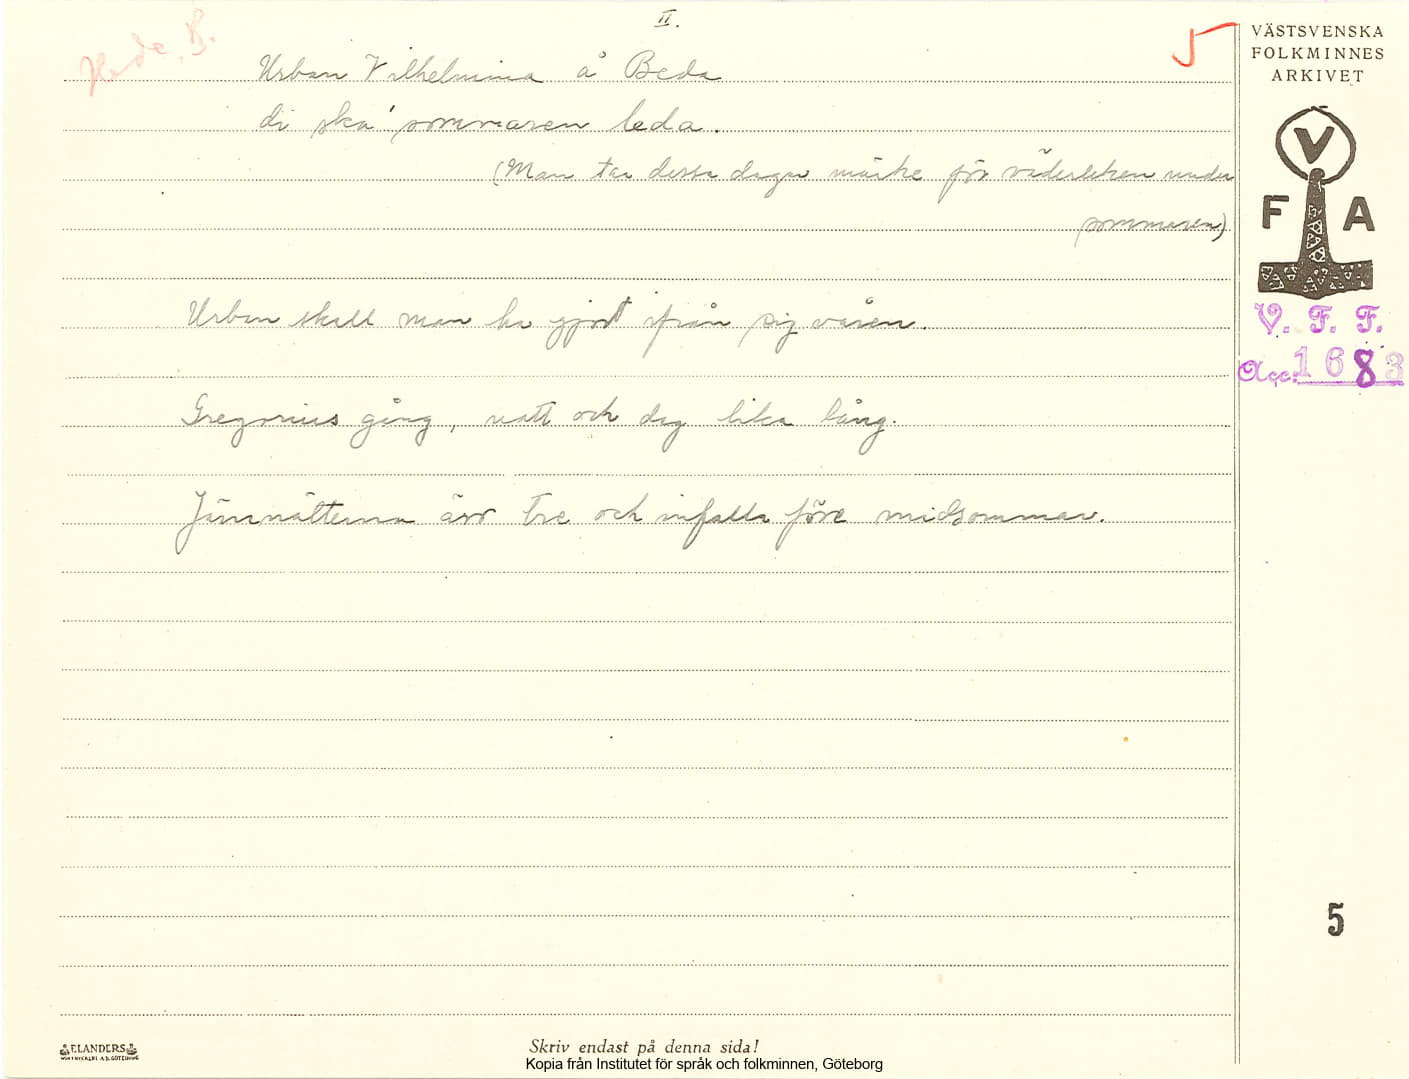 II.
Hede, B.
5
VÄSTSVENSKA
FOLKMINNES
ARKIVET
Urban Vilhelmina å Beda
di ska' sommaren leda.
(Man tar dessa dagar märke för väderleken under
sommaren)
V
F A
V. F. F.
Acc. 1683
Urban skall man ha gjort ifrån sig våren.
Gregorius gång, natt och dag lika lång.
Järnnätterna äro tre och infalla före midsommar.
5
ELANDERS
Skriv endast på denna sida!
Kopia från Institutet för språk och folkminnen, Göteborg